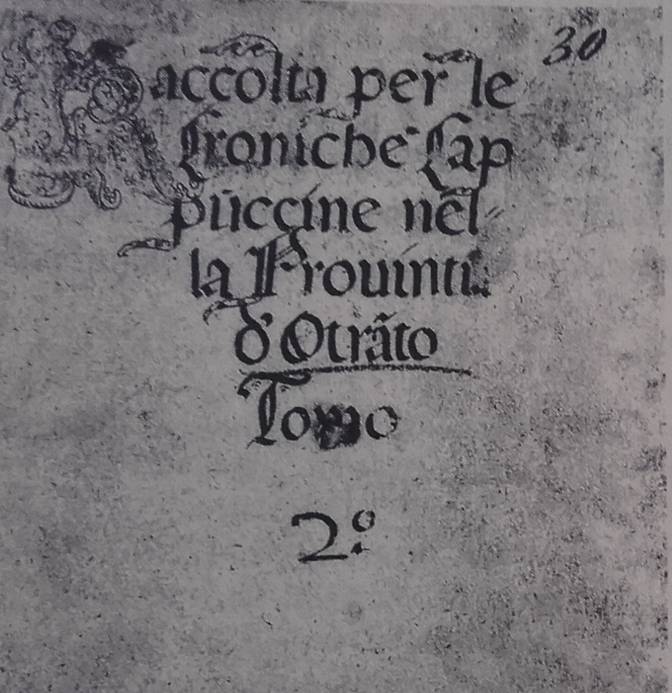 30
Raccolta per le
Croniche Cap
puccine nel-
la Prouinti:
d' Otrãto
Tomo
2º.